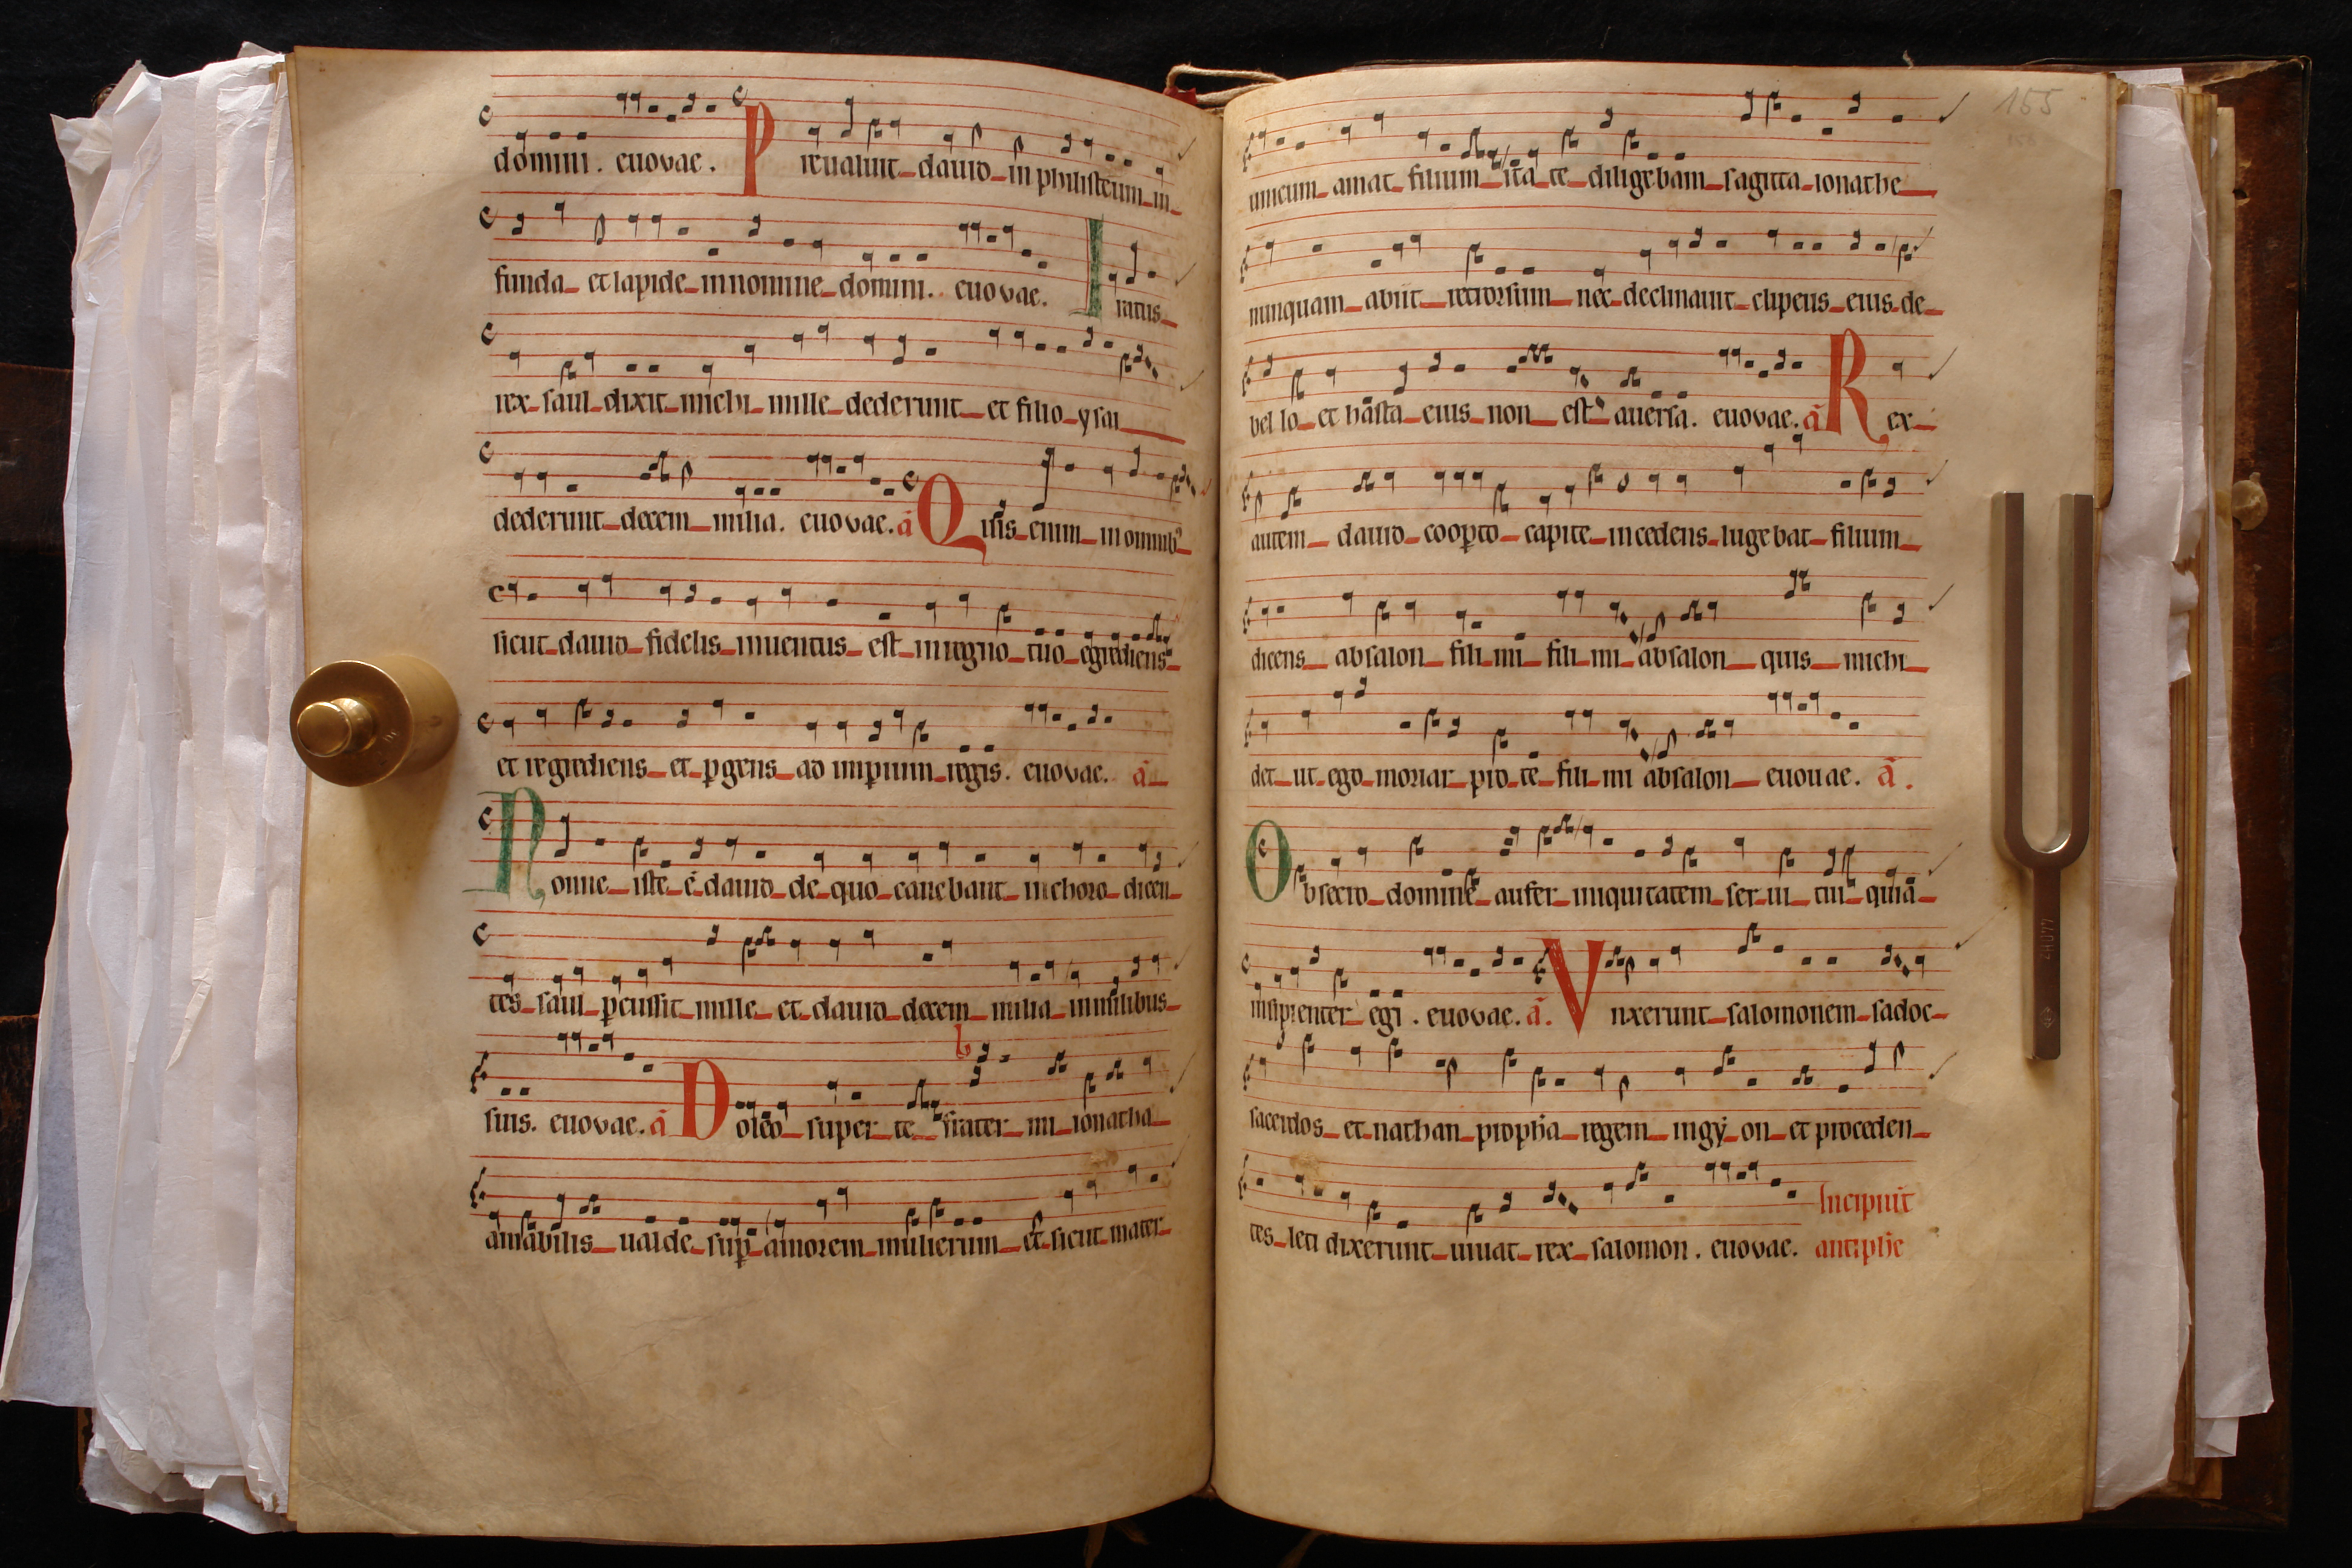 domini. euovae. Preualuit dauid in philisteum in
funda et lapide in nomine domini. euovae. Iratus
rex saul dixit michi mille dederunt et filio ysai
dederunt decem milia. euovae. a̅ Quis enim in omnib᾽
sicut dauid fidelis inuentus est in regno tuo egrediens
et regrediens et ꝑgens ad imꝑium regis. euovae. a̅
Nonne iste ē dauid de quo canebant in choro dicen
tes saul ꝑcussit mille et dauid decem milia in milibus
suis. euovae. a̅ Doleo super te frater mi ionatha
amabilis ualde suꝑ amorem mulierum et sicut mater
155
unicum amat filium ita te diligebam sagitta ionathe
nunquam abiit retrorsum nec declinauit clipeus eius de
bel lo et hasta eius non est auersa. euovae. a̅ Rex
autem dauid cooꝑto capite incedens lugebat filium
dicens absalon fili mi fili mi absalon quis michi
det ut ego moriar pro te fili mi absalon euouae. a̅.
Obsecro domine aufer iniquitatem ser ui tui quia
insipienter egi. euovae. a̅. Vnxerunt salomonem sadoc
sacerdos et nathan propħa regem in gy on et proceden
tes leti dixerunt uiuat rex salomon. euovae. Incipiūt
antipħe